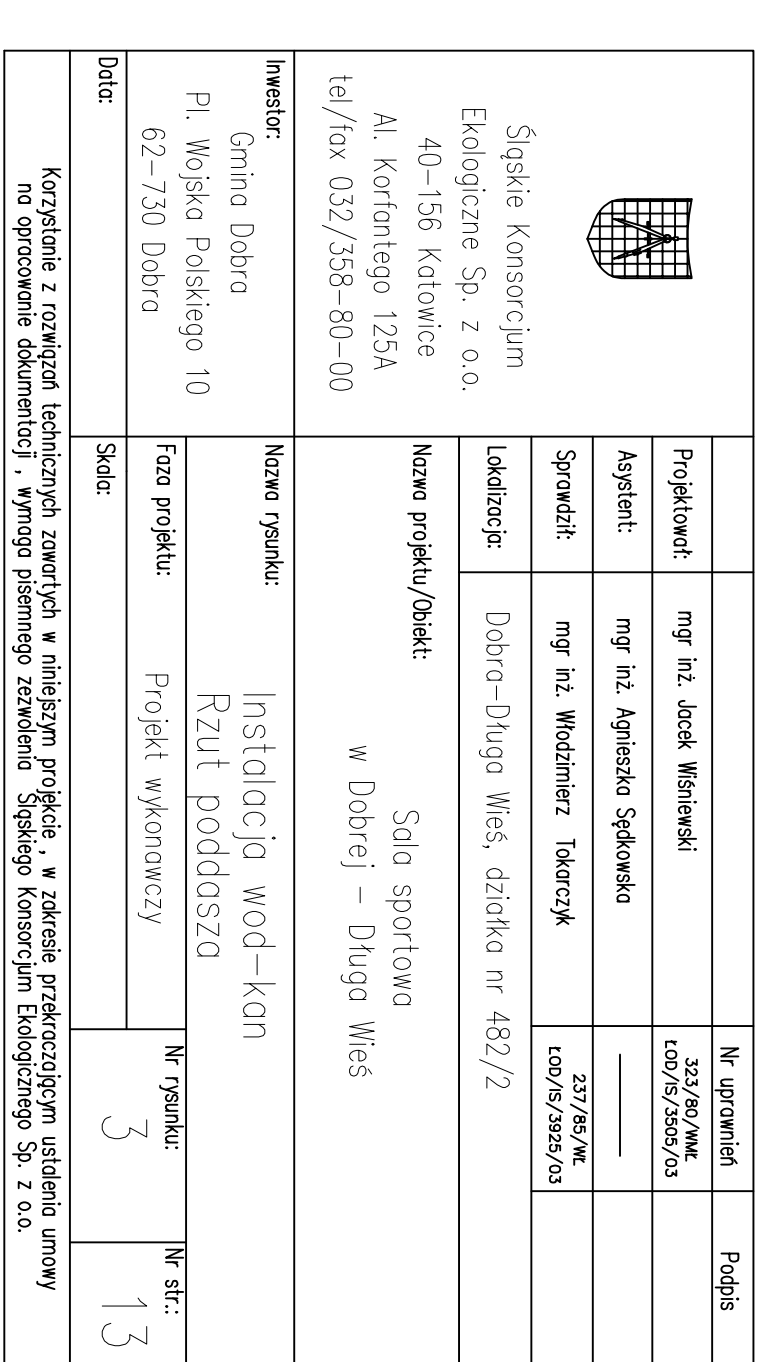 Śląskie Konsorcjum
Ekologiczne Sp. z o.o.
40-156 Katowice
Al. Korfantego 125A
tel/fax 032/358-80-00
Nr uprawnień
Podpis
Projektował:
mgr inż. Jacek Wiśniewski
323/80/WMŁ
ŁOD/IS/3505/03
Asystent:
mgr inż. Agnieszka Sędkowska
Sprawdził:
mgr inż. Włodzimierz Tokarczyk
237/85/WŁ
ŁOD/IS/3925/03
Lokalizacja:
Dobra-Długa Wieś, działka nr 482/2
Nazwa projektu/Obiekt:
Sala sportowa
w Dobrej - Długa Wieś
Inwestor:
Gmina Dobra
Pl. Wojska Polskiego 10
62-730 Dobra
Nazwa rysunku:
Instalacja wod-kan
Rzut poddasza
Faza projektu:
Projekt wykonawczy
Nr rysunku:
3
Nr str.:
13
Data:
Skala:
Korzystanie z rozwiązań technicznych zawartych w niniejszym projekcie , w zakresie przekraczającym ustalenia umowy
na opracowanie dokumentacji , wymaga pisemnego zezwolenia Śląskiego Konsorcjum Ekologicznego Sp. z o.o.